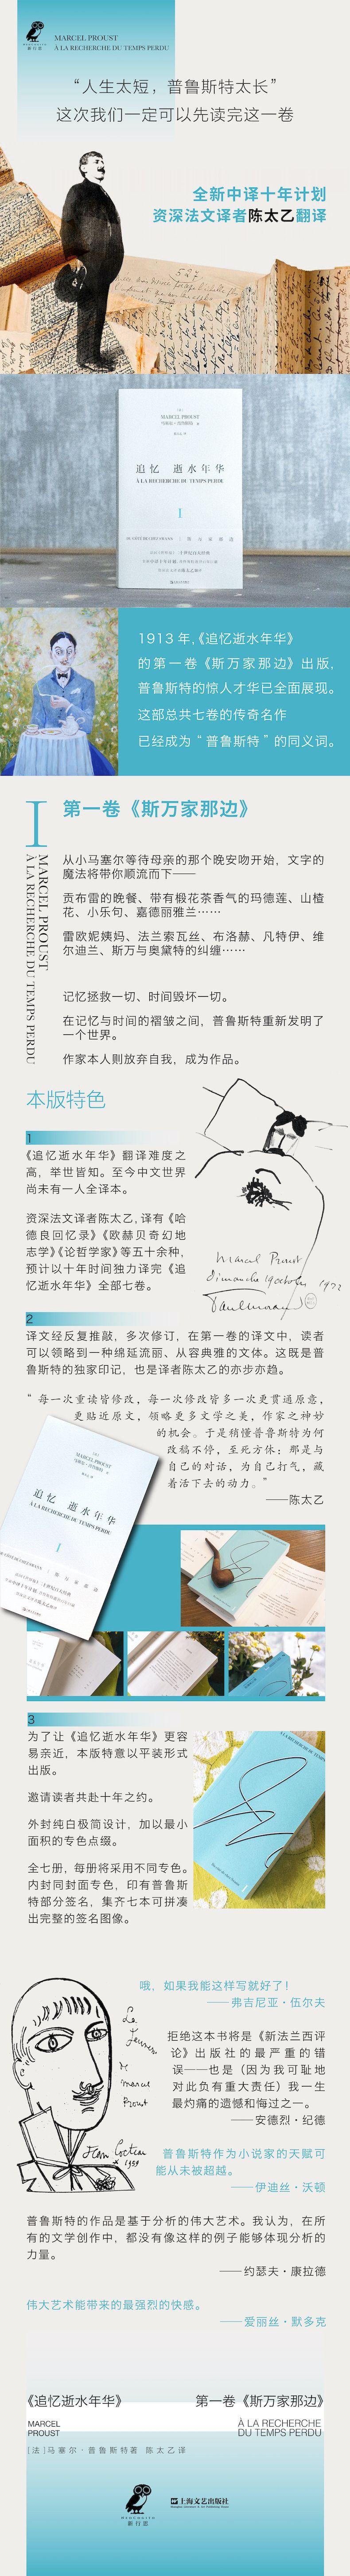 MARCEL PROUST
À LA RECHERCHE DU TEMPS PERDU
新行思
“人生太短，普鲁斯特太长”
这次我们一定可以先读完这一卷
全新中译十年计划
资深法文译者陈太乙翻译
MARCEL PROUST
追忆 逝水年华
À LA RECHERCHE DU TEMPS PERDU
I
1913 年，《追忆逝水年华》
的第一卷《斯万家那边》出版，
普鲁斯特的惊人才华已全面展现。
这部总共七卷的传奇名作
已经成为“普鲁斯特”的同义词。
I
MARCEL PROUST
À LA RECHERCHE DU TEMPS PERDU
第一卷《斯万家那边》
从小马塞尔等待母亲的那个晚安吻开始，文字的
魔法将带你顺流而下——
贡布雷的晚餐、带有椴花茶香气的玛德莲、山楂
花、小乐句、嘉德丽雅兰……
雷欧妮姨妈、法兰索瓦丝、布洛赫、凡特伊、维
尔迪兰、斯万与奥黛特的纠缠……
记忆拯救一切、时间毁坏一切。
在记忆与时间的褶皱之间，普鲁斯特重新发明了
一个世界。
作家本人则放弃自我，成为作品。
本版特色
1
《追忆逝水年华》翻译难度之
高，举世皆知。至今中文世界
尚未有一人全译本。
资深法文译者陈太乙，译有《哈
德良回忆录》《欧赫贝奇幻地
志学》《论哲学家》等五十余种，
预计以十年时间独力译完《追
忆逝水年华》全部七卷。
Marcel Proust
2
译文经反复推敲，多次修订，在第一卷的译文中，读者
可以领略到一种绵延流丽、从容典雅的文体。这既是普
鲁斯特的独家印记，也是译者陈太乙的亦步亦趋。
“每一次重读皆修改，每一次修改皆多一次更贯通原意，
更贴近原文，领略更多文学之美，作家之神妙
的机会。于是稍懂普鲁斯特为何
改稿不停，至死方休：那是与
自己的对话，为自己打气，藏
着活下去的动力。”
——陈太乙
MARCEL PROUST
追忆 逝水年华
À LA RECHERCHE DU TEMPS PERDU
I
3
为了让《追忆逝水年华》更容
易亲近，本版特意以平装形式
出版。
邀请读者共赴十年之约。
外封纯白极简设计，加以最小
面积的专色点缀。
全七册，每册将采用不同专色。
内封同封面专色，印有普鲁斯
特部分签名，集齐七本可拼凑
出完整的签名图像。
哦，如果我能这样写就好了！
——弗吉尼亚·伍尔夫
拒绝这本书将是《新法兰西评
论》出版社的最严重的错
误——也是（因为我可耻地
对此负有重大责任）我一生
最灼痛的遗憾和悔过之一。
——安德烈·纪德
普鲁斯特作为小说家的天赋可
能从未被超越。
——伊迪丝·沃顿
marcel
Proust
Jean Cocteau
普鲁斯特的作品是基于分析的伟大艺术。我认为，在所
有的文学创作中，都没有像这样的例子能够体现分析的
力量。
——约瑟夫·康拉德
伟大艺术能带来的最强烈的快感。
——爱丽丝·默多克
《追忆逝水年华》 第一卷《斯万家那边》
MARCEL
PROUST
À LA RECHERCHE
DU TEMPS PERDU
[法]马塞尔·普鲁斯特著 陈太乙译
新行思
上海文艺出版社